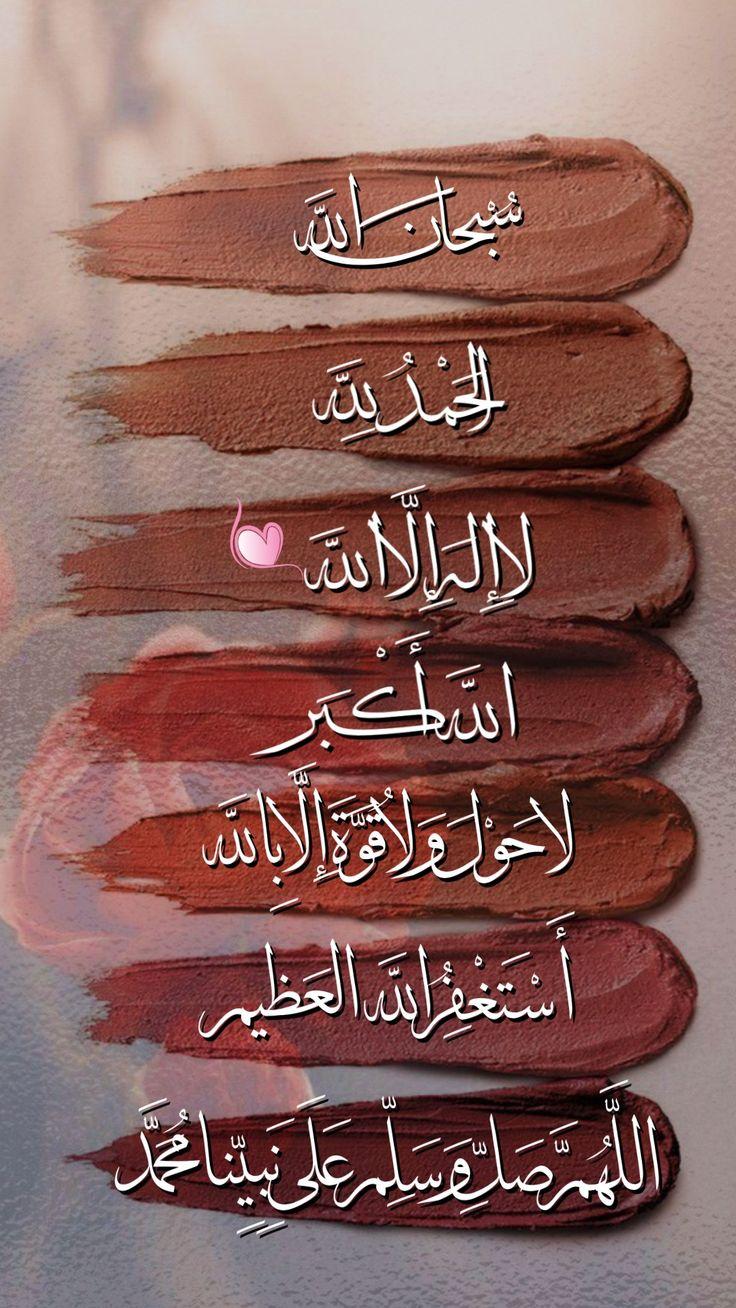 سُبْحَانَ اللَّه
الحَمْدُ لِلَّهِ
لا إِلهَ إِلَّا اللَّه
اللَّه أَكْبَر
لا حَوْلَ وَلا قُوَّةَ إِلَّا بِاللَّه
أَسْتَغْفِرُ اللَّه العَظِيم
اللَّهُمَّ صَلِّ وَسَلِّم عَلَى نَبِيِّنا مُحَمَّد